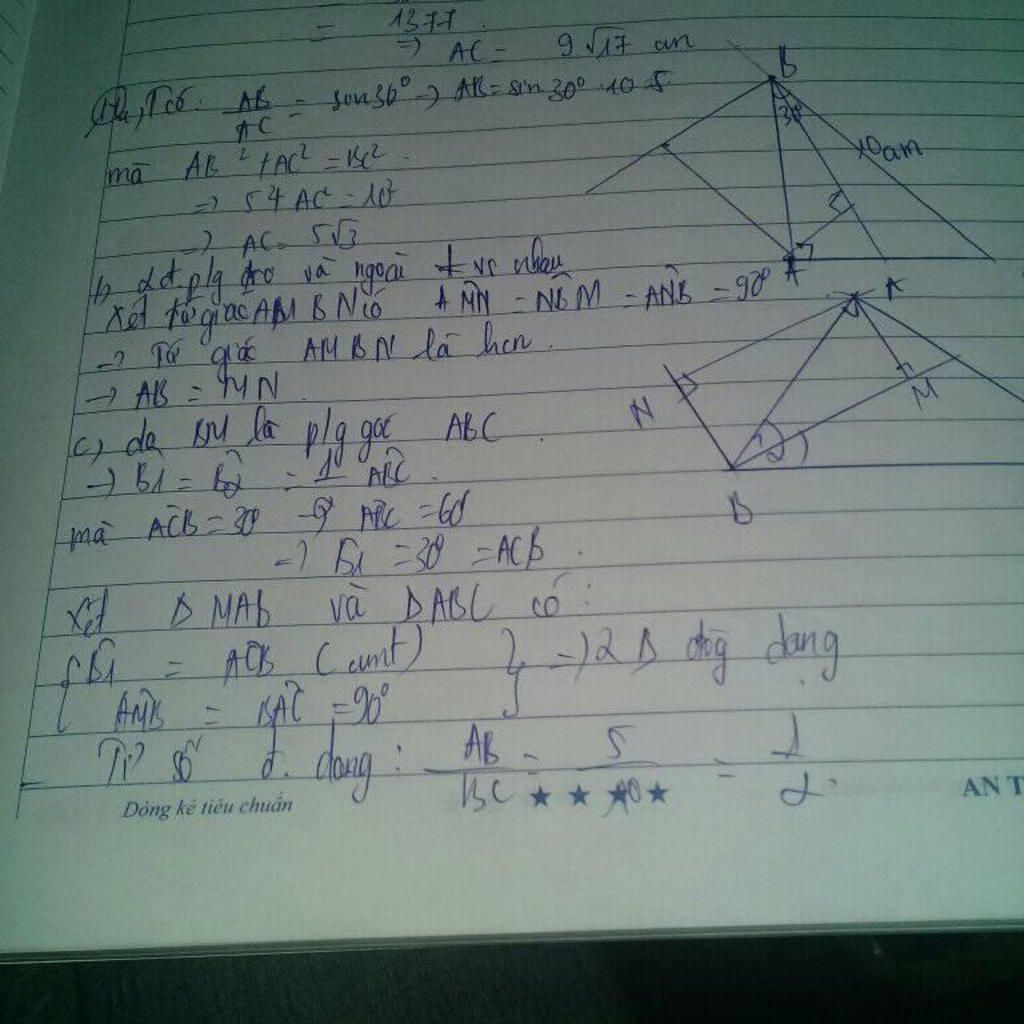 = 1377
=> AC = 9√17 cm
Ta có: AB/AC = sin30° → AB = sin30°.10=5
mà AB² + AC² = BC²
=> 5² + AC² = 10²
=> AC = 5√3
b, 2 đ. p/g tro và ngoài ⊥ vs nhau
Xét tứ giác AMBN có AMN = NBM = ANB = 90°
→ Tứ giác AMBN là hcn.
→ AB = MN
c, da BM là p/g góc ABC
→ B1 = B2 = 1 ABC.
mà ACB = 30 → ABC = 60
=> B1 = 30 = ACB.
Xét Δ MAB và Δ ABC có:
{ B1 = ACB (cmt) } => 2 Δ đồg dạng
AMB = BAC = 90°
Tỉ số đ. dạng: AB/BC = 5/10 = 1/2.
B
30°
10cm
A
A
N
M
2
B
Dòng kẻ tiêu chuẩn ★ ★ ★ ★ AN T